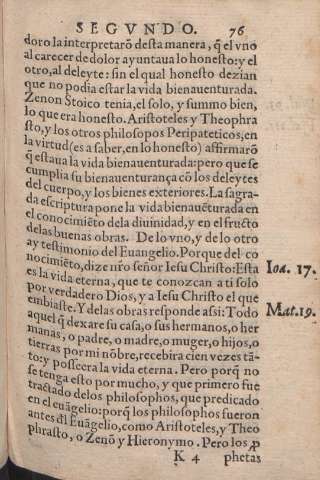 SEGVNDO. 76
doro la interpretarõ desta manera, q̃ el vno
al carecer de dolor ayuntaua lo honesto: y el
otro, al deleyte: sin el qual honesto dezian
que no podia estar la vida bienauenturada.
Zenon Stoico tenia, el solo, y summo bien,
lo que era honesto. Aristoteles y Theophra
sto, y los otros philosopos Peripateticos, en
la virtud (es a saber, en lo honesto) affirmarõ
q̃ estaua la vida bienauenturada: pero que se
cumplia su bienauenturança cõ los deleytes
del cuerpo, y los bienes exteriores. La sagra-
da escriptura pone la vida bienauẽturada en
el conocimiẽto dela diuinidad, y en el fructo
delas buenas obras. De lo vno, y de lo otro
ay testimonio del Euangelio. Porque del co
nocimiẽto, dize nr̃o señor Iesu Christo: Esta
es la vida eterna, que te conozcan a ti solo
por verdadero Dios, y a Iesu Christo el que
embiaste. Y delas obras responde assi: Todo
aquel q̃ dexare su casa, o sus hermanos, o her
manas, o padre, o madre, o muger, o hijos, o
tierras por mi nõbre, recebira cien vezes tã-
to: y posseera la vida eterna. Pero porq̃ no
se tenga esto por mucho, y que primero fue
tractado delos philosophos, que predicado
en el euãgelio: porq̃ los philosophos fueron
antes dl̃ Euãgelio, como Aristoteles, y Theo
phrasto, o Zenõ y Hieronymo. Pero los ꝓ
K 4 phetas
Ioa. 17.
Mat. 19.